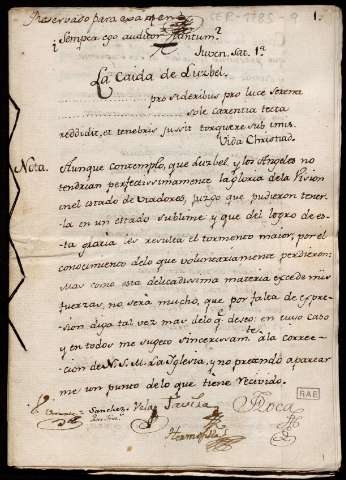 Reservado para examen
SER-1785-9
1.
¿Semper ego auditor tantum?
Juven. Sat. 1ª
La Caida de Luzbel.
pro sideribus pro luce serena
sole carentia tecta
reddidit, et tenebris jussit torquere sub imis.
Vida Christiad.
Nota. Aunque contemplo, que Luzbel y los Angeles no
tendrian perfectissimamente la gloria de la Vision
en el estado de Viadores, juzgo que pudieron tener-
la en un estado sublime y que del logro de es-
ta gloria les resulta el tormento maior, por el
conocimiento de lo que voluntariamente perdieron:
Mas como esta delicadissima materia excede mis
fuerzas, no será mucho, que por falta de expre-
sion diga tal vez mas de lo q deseo: en cuio caso
y en todos me sugeto sincerissam.te á la correc-
cion de N. S. M. La Iglesia, y no pretendo apartar
me un punto de lo que tiene recivido.
Sanchez Vela Trevilla Roca
Hermosilla
RAE